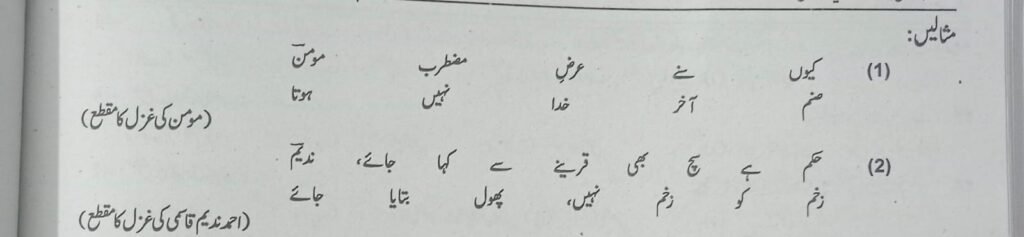 مثالیں:
(1) کیوں سنے عرضِ مضطرب مومنؔ
صنم آخر خدا نہیں ہوتا
(مومن کی غزل کا مقطع)
(2) حکم ہے سچ بھی قرینے سے کہا جائے، ندیمؔ
زخم کو زخم نہیں، پھول بتایا جائے
(احمد ندیم قاسمی کی غزل کا مقطع)